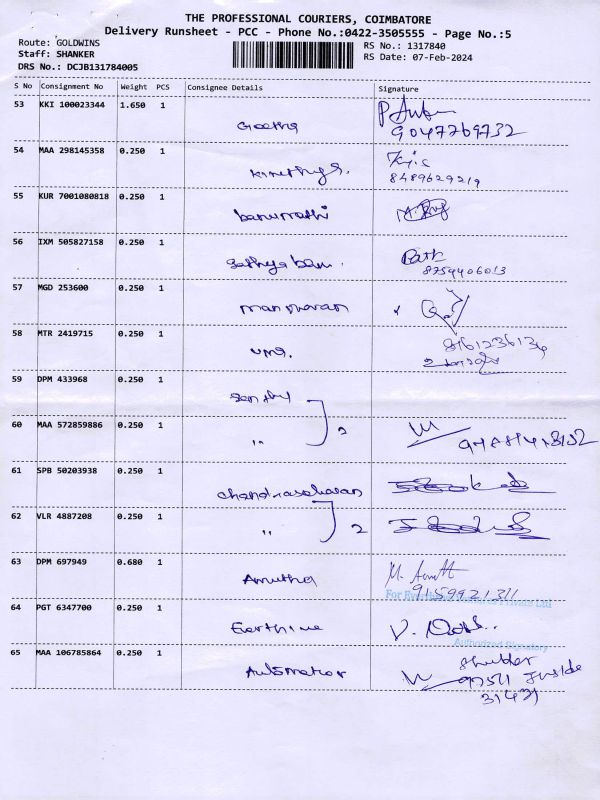 THE PROFESSIONAL COURIERS, COIMBATORE
Delivery Runsheet - PCC - Phone No.:0422-3505555 - Page No.:5
Route: GOLDWINS
Staff: SHANKER
DRS No.: DCJB131784005
RS No.: 1317840
RS Date: 07-Feb-2024
S No Consignment No Weight PCS Consignee Details Signature
53 KKI 100023344 1.650 1
Geetha
9047769732
54 MAA 298145358 0.250 1
8489629219
55 KUR 7001080818 0.250 1
banumathi
56 IXM 505827158 0.250 1
Sathya banu.
8754406013
57 MGD 253600 0.250 1
manoharan
58 MTR 2419715 0.250 1
uma.
59 DPM 433968 0.250 1
Senthil
60 MAA 572859886 0.250 1
" 2
61 SPB 50203938 0.250 1
Chandrasekaran
62 VLR 4887208 0.250 1
" 2
63 DPM 697949 0.680 1
Amutha
9159921311
64 PGT 6347700 0.250 1
Authorized Signatory
65 MAA 106785864 0.250 1
Automation
97511
31431